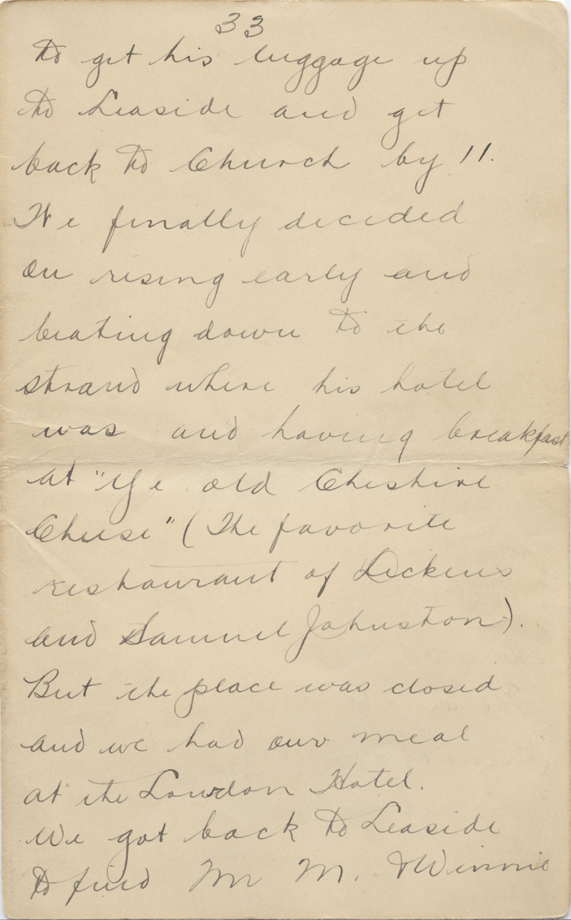 33
to get his luggage up
to Leaside and get
back to Church by 11.
We finally decided
on rising early and
beating down to the
strand where his hotel
was and having breakfast
at "Ye old Cheshire
Cheese" (The favorite
restaurant of Dickens
and Samuel Johnston).
But the place was closed
and we had our meal
at the London Hotel.
We got back to Leaside
to find Mr M. & Winnie